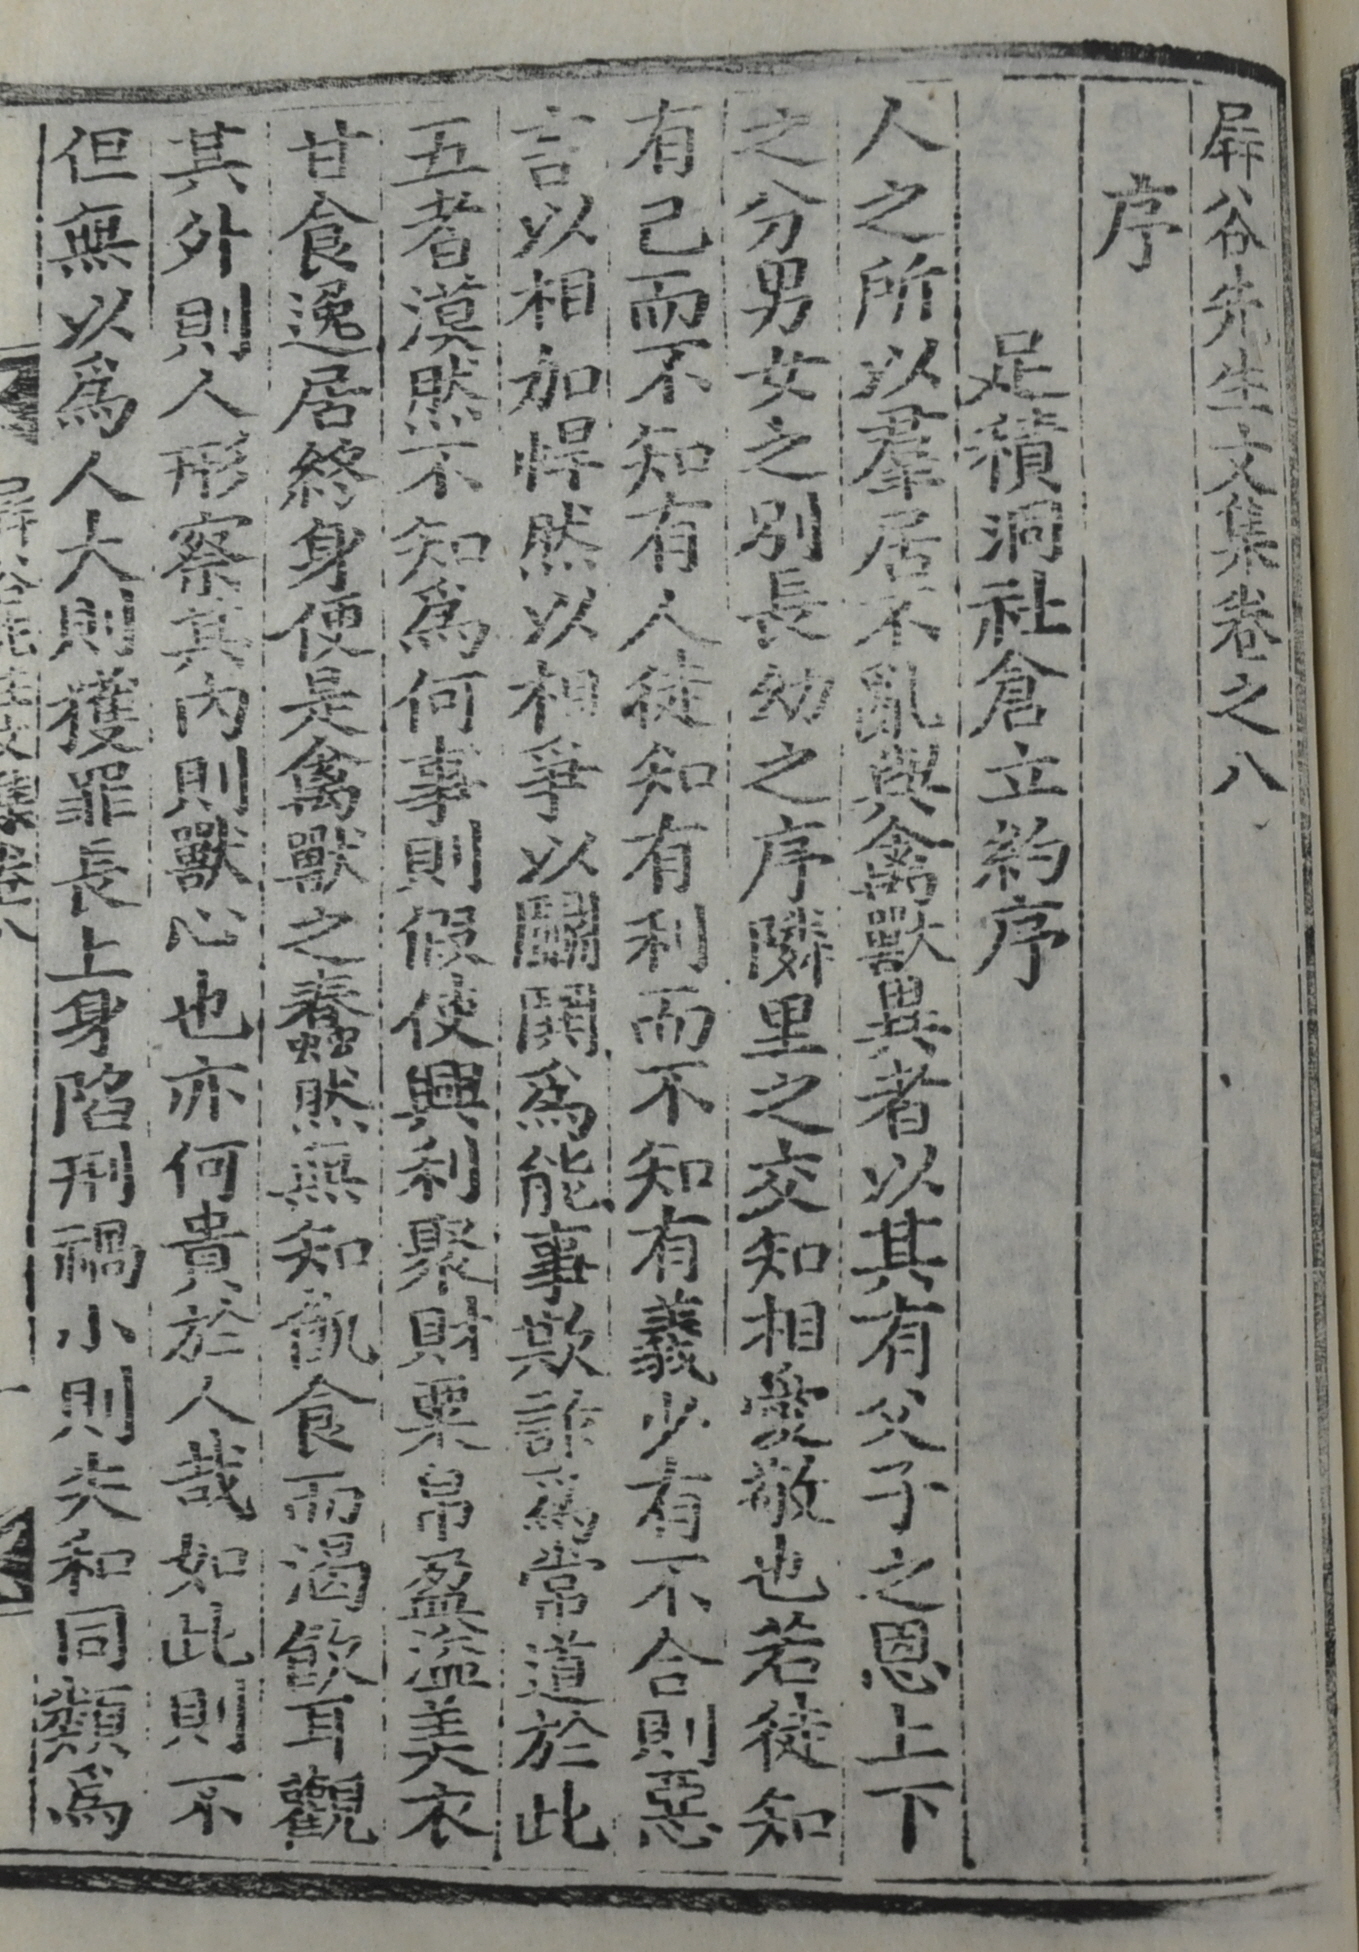 屛谷先生文集卷之八
序
足積洞社倉立約序
人之所以羣居不亂與禽獸異者以其有父子之恩上下
之分男女之別長幼之序隣里之交知相愛敬也若徒知
有己而不知有人徒知有利而不知有義少有不合則惡
言以相加悍然以相爭以鬪鬨爲能事欺詐爲常道於此
五者漠然不知爲何事則假使興利聚財粟帛盈溢美衣
甘食逸居終身便是禽獸之蠢然無知飢食而渴飮耳觀
其外則人形察其內則獸心也亦何貴於人哉如此則不
但無以爲人大則獲罪長上身陷刑禍小則失和同類爲
屛谷先生文集卷八
一